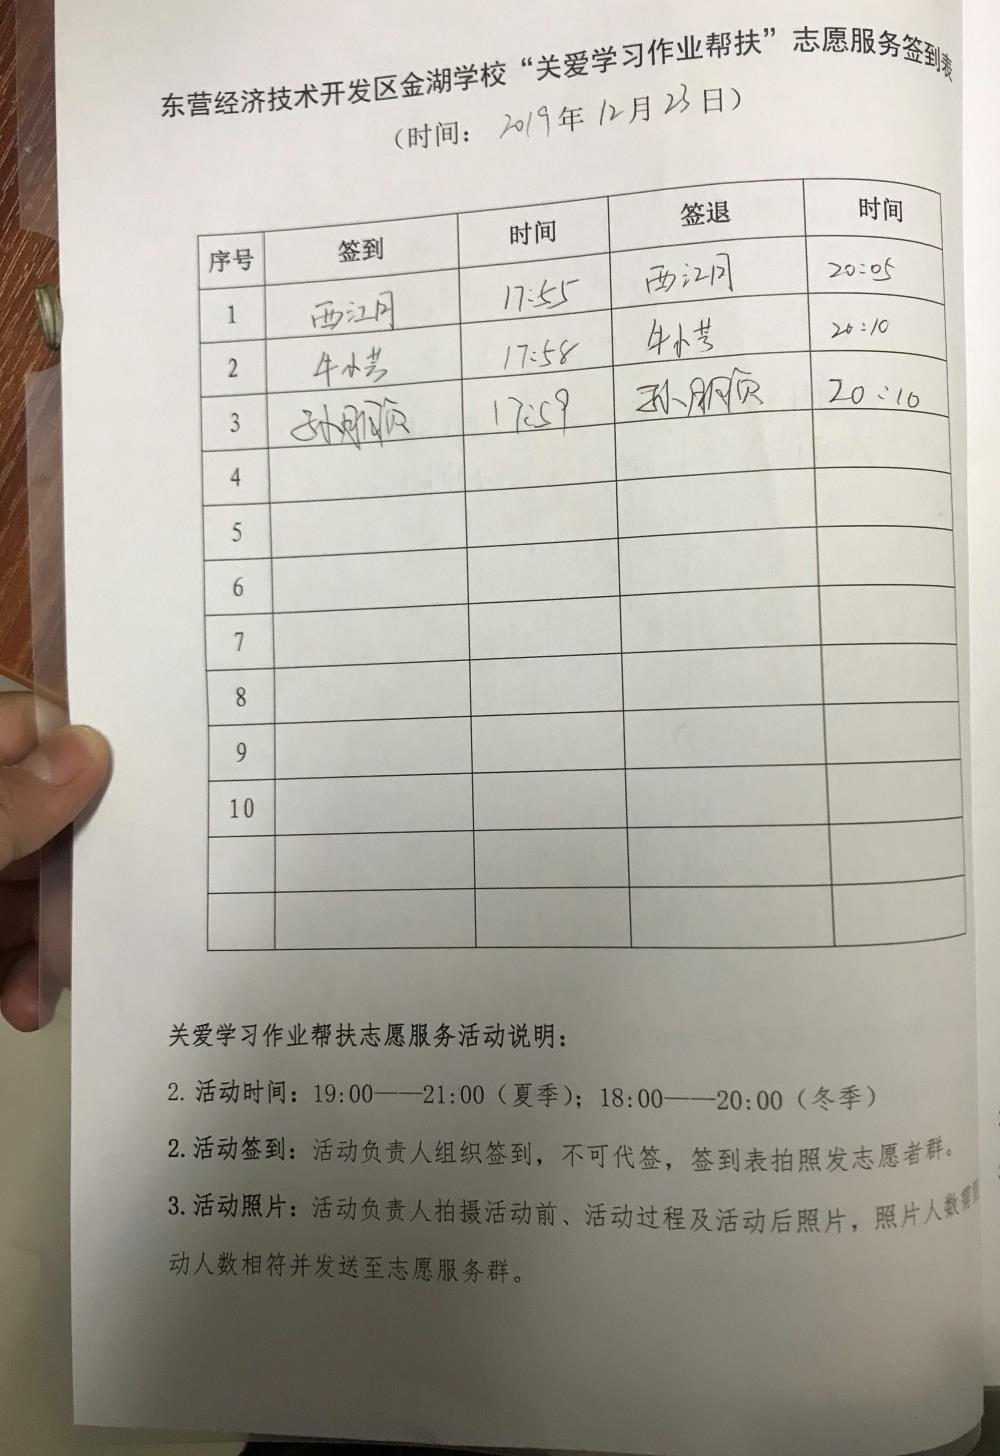 东营经济技术开发区金湖学校“关爱学习作业帮扶”志愿服务签到表
（时间： 2019年12月23日）
序号 签到 时间 签退 时间
1 西江月 17:55 西江月 20:05
2 牛小芸 17:58 牛小芸 20:10
3 孙 17:59 孙 20:10
4
5
6
7
8
9
10
关爱学习作业帮扶志愿服务活动说明：
2. 活动时间：19:00——21:00（夏季）；18:00——20:00（冬季）
2. 活动签到：活动负责人组织签到，不可代签，签到表拍照发志愿者群。
3. 活动照片：活动负责人拍摄活动前、活动过程及活动后照片，照片人数需
动人数相符并发送至志愿服务群。